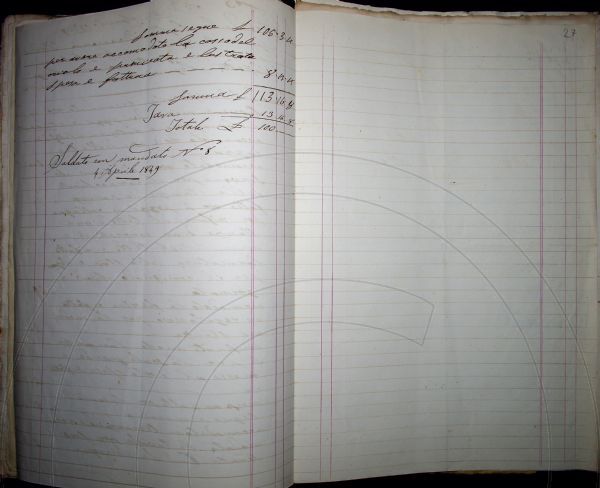 Somma segue £ 105.3.4
per avere accomodato la cassa del
e lustrata
spese e fatture — — — 8.
Somma £ 113.16.8
Tara 13.16.8
Totale £ 100
Saldato con mandato N° 8
4 Aprile 1849
27